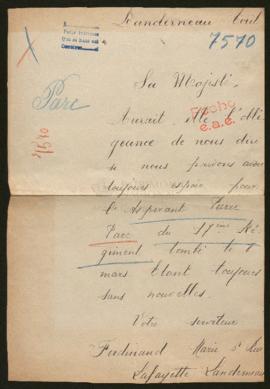 Landerneau
7570
Parc
Sa Majesté
Aurait Elle l'obli
geance de nous dire
si nous pouvons avoir
toujours espoir pour
l'Aspirant
Parc du 17eme Ré
giment tombé le 1
mars Etant toujours
sans nouvelles
Votre serviteur
Ferdinand Marie
Lafayette Landerneau